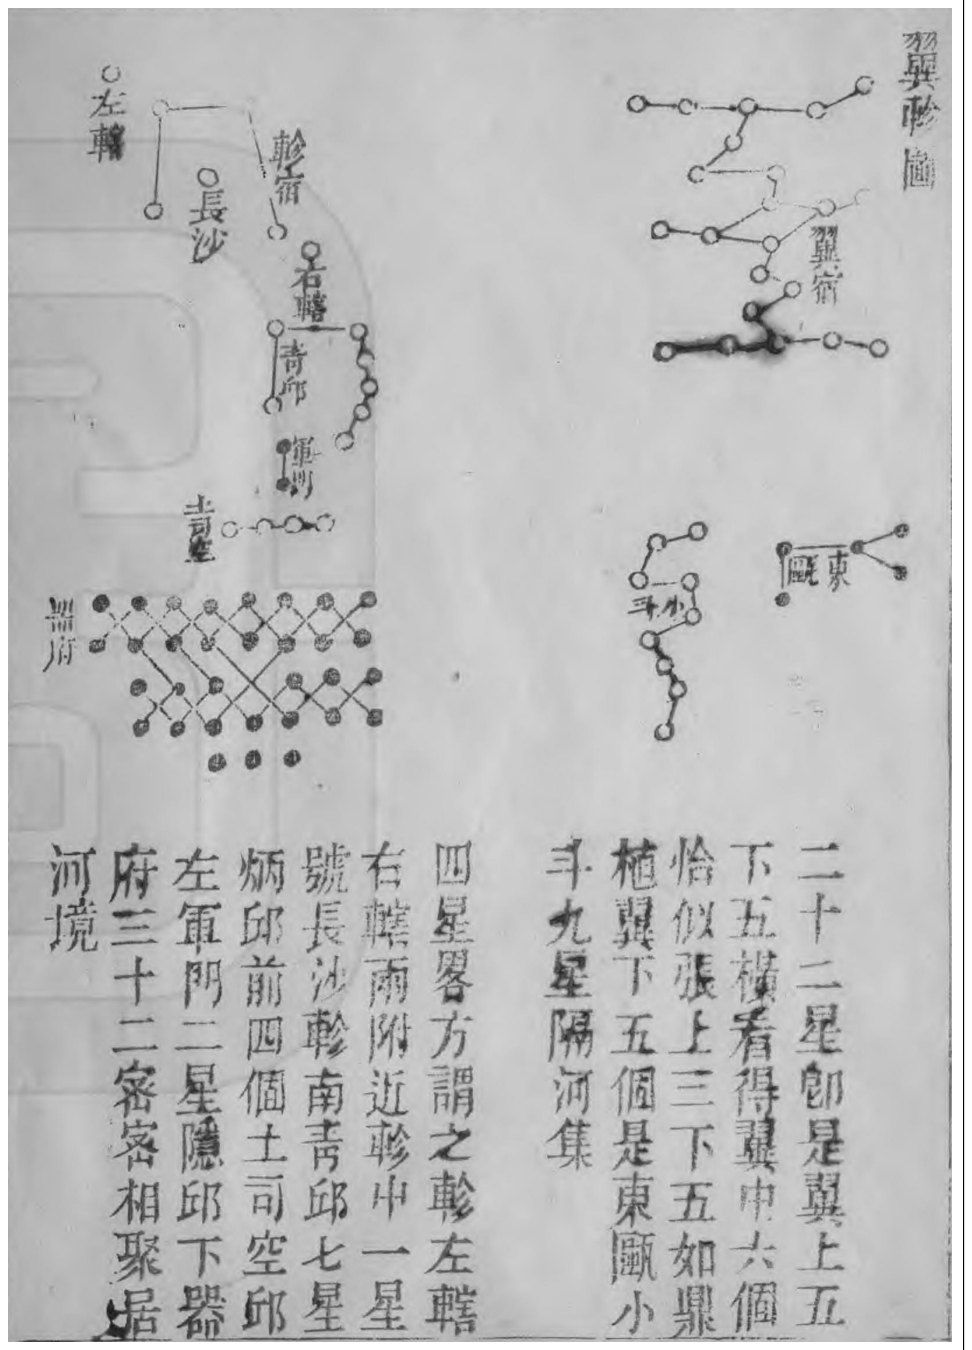 翼軫圖
翼宿
軫宿
左轄
長沙
右轄
青邱
軍門
土司空
器府
東甌
小斗
二十二星卽是翼上五
下五橫看得翼中六個
恰似張上三下五如鼎
植翼下五個是東甌小
斗九星隔河集
四星畧方謂之軫左轄
右轄兩附近軫中一星
號長沙軫南青邱七星
炳邱前四個土司空邱
左軍門二星隱邱下器
府三十二密密相聚居
河境